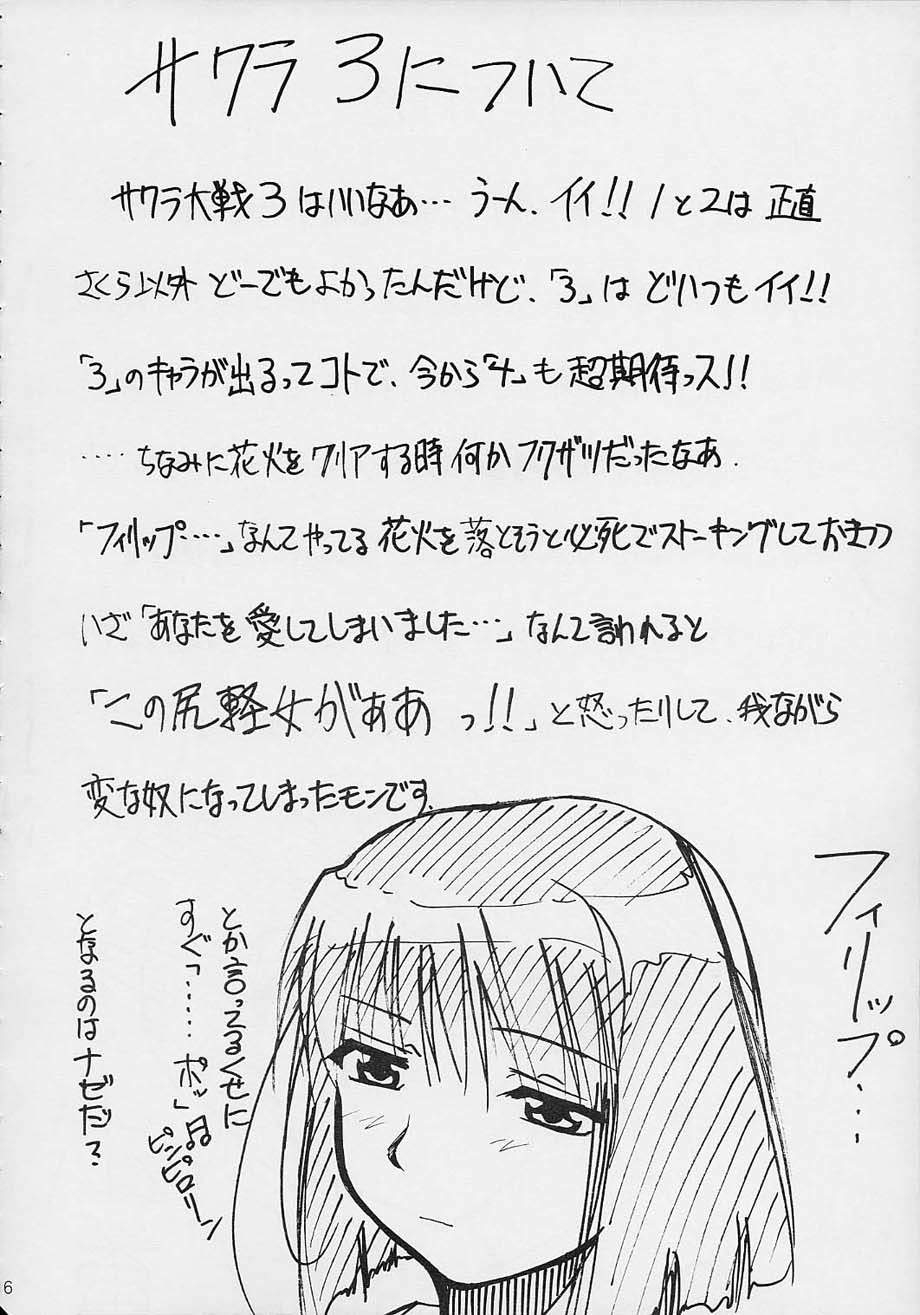 サクラ3について
サクラ大戦3はいいなあ…うーん、イイ!!1と2は正直
さくら以外どーでもよかったんだけど、「3」はどいつもイイ!!
「3」のキャラが出るってコトで、今から「4」も超期待っス!!
‥‥ちなみに花火をクリアする時何かフクザツだったなあ.
「フィリップ……」なんてやってる花火を落とそうと必死でストーキングしておきつつ
いざ「あなたを愛してしまいました…」なんて言われると
「この尻軽女がああっ!!」と怒ったりして、我ながら
変な奴になってしまったモンです.
フィリップ…
とか言ってるくせに
すぐ「……ポッ」♫
ピンピロリーン
となるのはナゼだ?
6